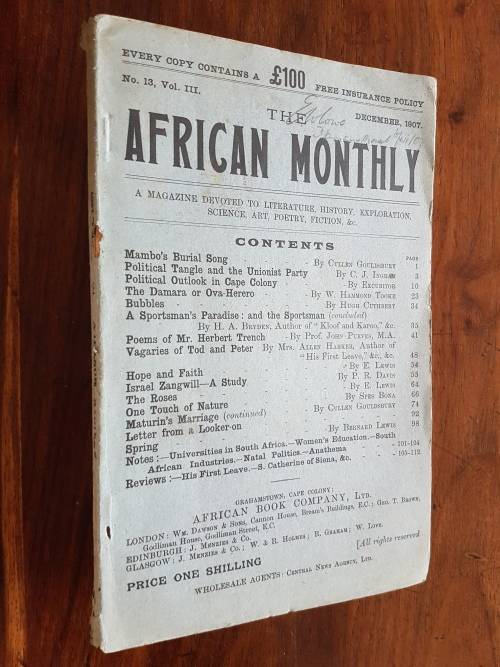 EVERY COPY CONTAINS A £100 FREE INSURANCE POLICY
No. 13, Vol. III.
DECEMBER, 1907.
THE
AFRICAN MONTHLY
A MAGAZINE DEVOTED TO LITERATURE, HISTORY, EXPLORATION,
SCIENCE, ART, POETRY, FICTION, &c.
CONTENTS
PAGE
Mambo's Burial Song - By Cullen Gouldsbury 1
Political Tangle and the Unionist Party By C. J. Ingram 3
Political Outlook in Cape Colony - By Excubitor 10
The Damara or Ova-Herero - By W. Hammond Tooke 23
Bubbles - By Hugh Cuthbert 34
A Sportsman's Paradise: and the Sportsman (concluded)
By H. A. Bryden, Author of "Kloof and Karoo," &c. 35
Poems of Mr. Herbert Trench - By Prof. John Purves, M.A. 41
Vagaries of Tod and Peter - By Mrs. Allen Harker, Author of
"His First Leave," &c., &c. 48
Hope and Faith - By E. Lewis 54
Israel Zangwill—A Study - By P. R. Davis 55
The Roses - By E. Lewis 64
One Touch of Nature - By Spes Bona 66
Maturin's Marriage (continued) - By Cullen Gouldsbury 74
Letter from a Looker-on 92
Spring - By Bernard Lewis 98
Notes:—Universities in South Africa.—Women's Education.—South
African Industries.—Natal Politics.—Anathema - 101-104
Reviews:—His First Leave.—S. Catherine of Siena, &c. - 105-112
GRAHAMSTOWN, CAPE COLONY:
AFRICAN BOOK COMPANY, Ltd.
LONDON: Wm. Dawson & Sons, Cannon House, Bream's Buildings, E.C.; Geo. T. Brown,
Godliman House, Godliman Street, E.C.
EDINBURGH: J. Menzies & Co.
GLASGOW: J. Menzies & Co.; W. & R. Holmes; R. Graham; W. Love.
[All rights reserved
PRICE ONE SHILLING
WHOLESALE AGENTS: Central News Agency, Ltd.